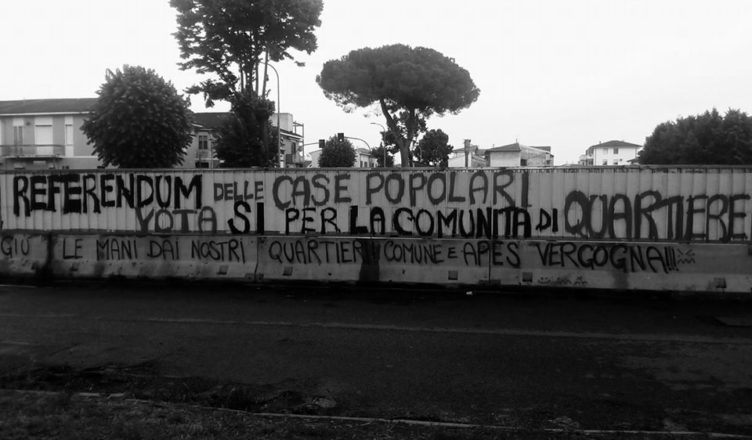 REFERENDUM DELLE CASE POPOLARI
VOTA SI PER LA COMUNITA DI QUARTIERE
GIÙ LE MANI DAI NOSTRI QUARTIERI!! COMUNE E APES VERGOGNA!!!